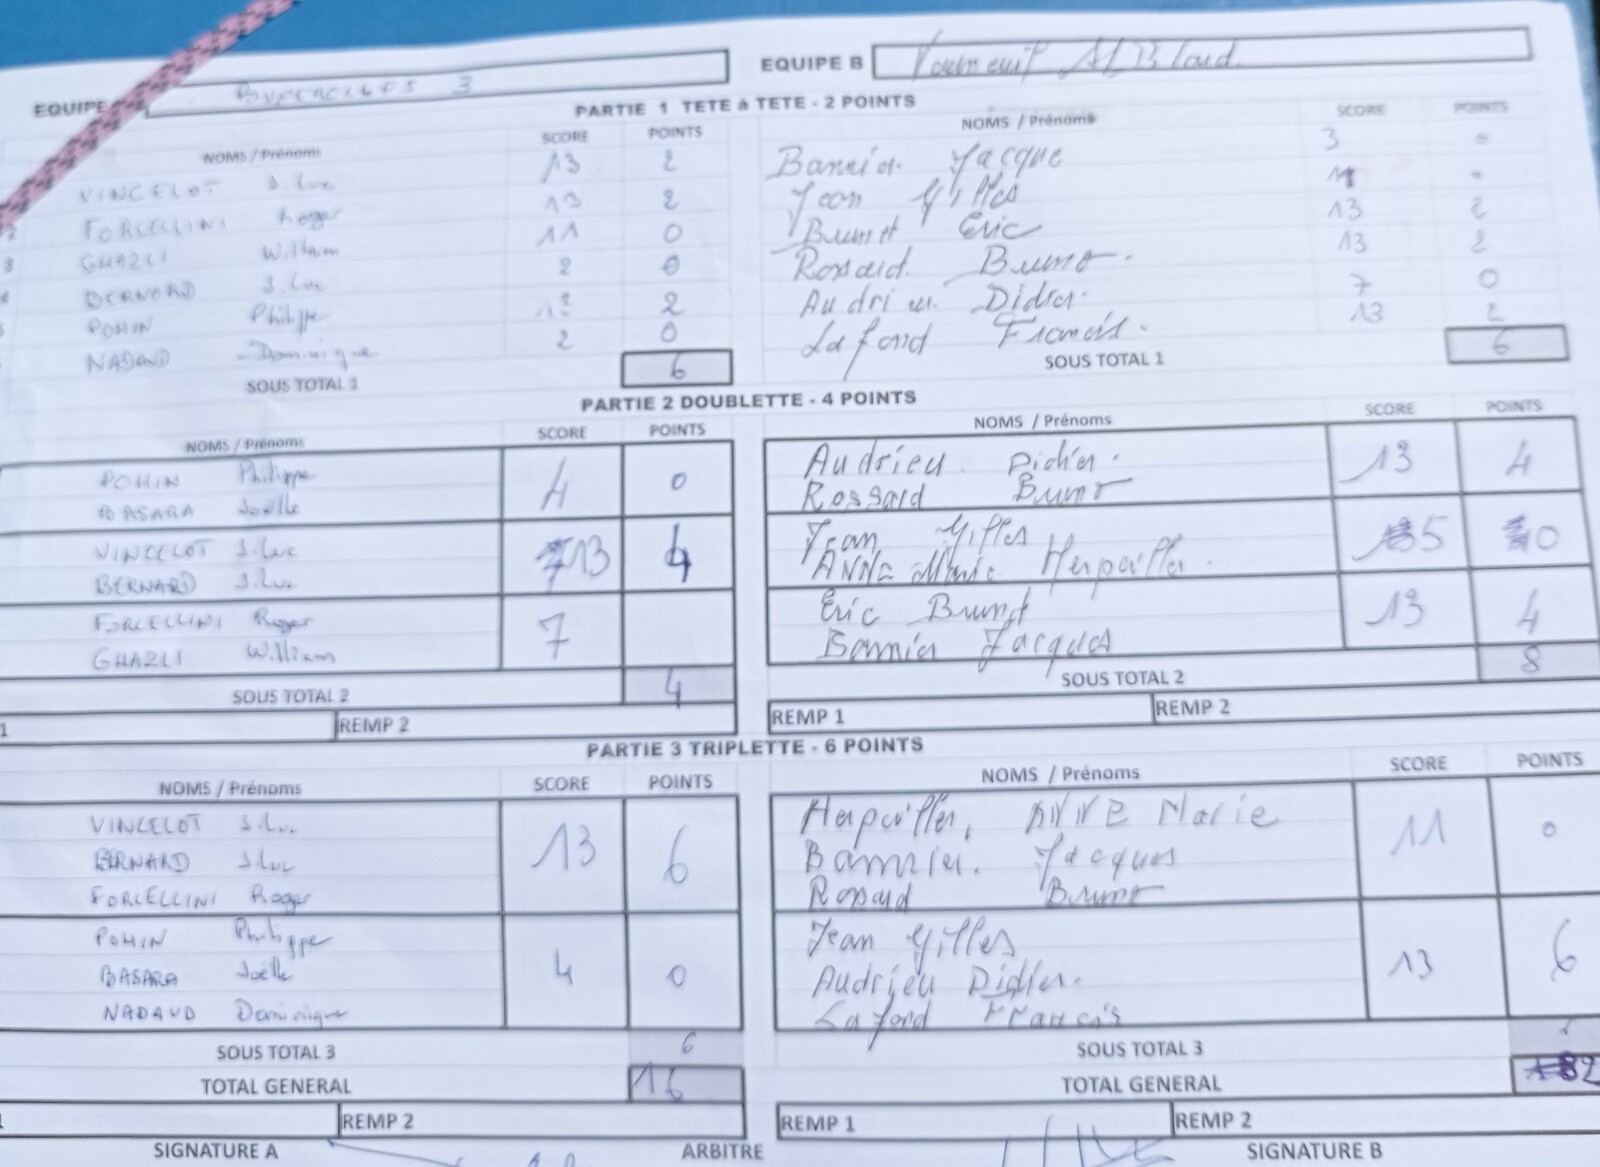 EQUIPE 3
EQUIPE B Vouneuil
PARTIE 1 TETE à TETE - 2 POINTS
NOMS / Prénoms SCORE POINTS NOMS / Prénoms SCORE POINTS
VINCELOT J.Luc 13 2 Bannier Jacque 3 0
FORCELLINI Roger 13 2 Jean Gilles
GHAZLI William 11 0 Brunet Eric 13 2
BERNARD J.Luc 2 0 Rossard Bruno 13 2
POHIN Philippe 2 Audrieu Didier 7 0
NADAUD Dominique 2 0 Lafond Francis 13 2
SOUS TOTAL 1 6 SOUS TOTAL 1 6
PARTIE 2 DOUBLETTE - 4 POINTS
NOMS / Prénoms SCORE POINTS NOMS / Prénoms SCORE POINTS
POHIN Philippe 4 0 Audrieu Didier 13 4
BASARA Joëlle Rossard Bruno
VINCELOT J.Luc 13 4 Jean Gilles 5 0
BERNARD J.Luc ANNE Marie Herpailler
FORCELLINI Roger 7 Eric Brunet 13 4
GHAZLI William Bannier Jacques
SOUS TOTAL 2 4 SOUS TOTAL 2 8
1 REMP 2 REMP 1 REMP 2
PARTIE 3 TRIPLETTE - 6 POINTS
NOMS / Prénoms SCORE POINTS NOMS / Prénoms SCORE POINTS
VINCELOT J.Luc 13 6 Herpailler, ANNE Marie 11 0
BERNARD J.Luc Bannier Jacques
FORCELLINI Roger Rossard Bruno
POHIN Philippe 4 0 Jean Gilles 13 6
BASARA Joëlle Audrieu Didier
NADAUD Dominique Lafond Francis
SOUS TOTAL 3 6 SOUS TOTAL 3
TOTAL GENERAL 16 TOTAL GENERAL
REMP 2 REMP 1 REMP 2
SIGNATURE A ARBITRE SIGNATURE B